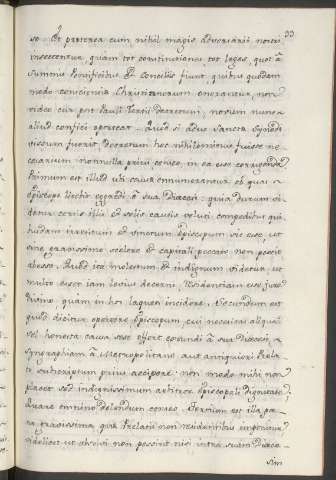 33
so. Et præterea cum nihil magis adversarii nostri
insectentur, quam tot constitutiones tot leges, quot à
summis Pontificibus et Conciliis fiunt, quibus quodam
modo conscientiæ Christianorum onerantur, non
video cur post Pauli Tertii Decretum, novum nunc
aliud confici oporteat. Quod si adhuc Sanctæ Synodo
visum fuerit, Decretum hoc nihilominus fuisse ne-
cessarium, nonnulla prius censeo in ea esse corrigenda.
Primum est illud ubi causa ennumerantur, ob quas
Episcopo liceat egredi à sua Diœcesi: quia durum vi-
detur certis illis et solis causis veluti compedibus qui-
busdam irretitum et Episcopum sic esse, ut
sine gravissimo scelere et capitali peccato non possit
abesse. Quod ita molestum et indignum videtur, ut
multo esset iam levius decerni, Residentiam esse jure
Divino, quam in hos laqueos incidere. Secundum est
quod dicitur oportere Episcopum, cui necessaria aliqua
vel honesta causa sese offert exeundi à sua Diœcesi,
syngrapham à Metropolitano aut antiquiori Præla-
to subscriptam prius accipere: non modo mihi non
placet sed indignissimum arbitror Episcopali dignitate;
Quare omnino delendum censeo. Tertium est illa pœ-
na gravissima, quæ Prelatis non residentibus imponitur,
videlicet ut absolvi non possint nisi intra suam Diœce-
sim